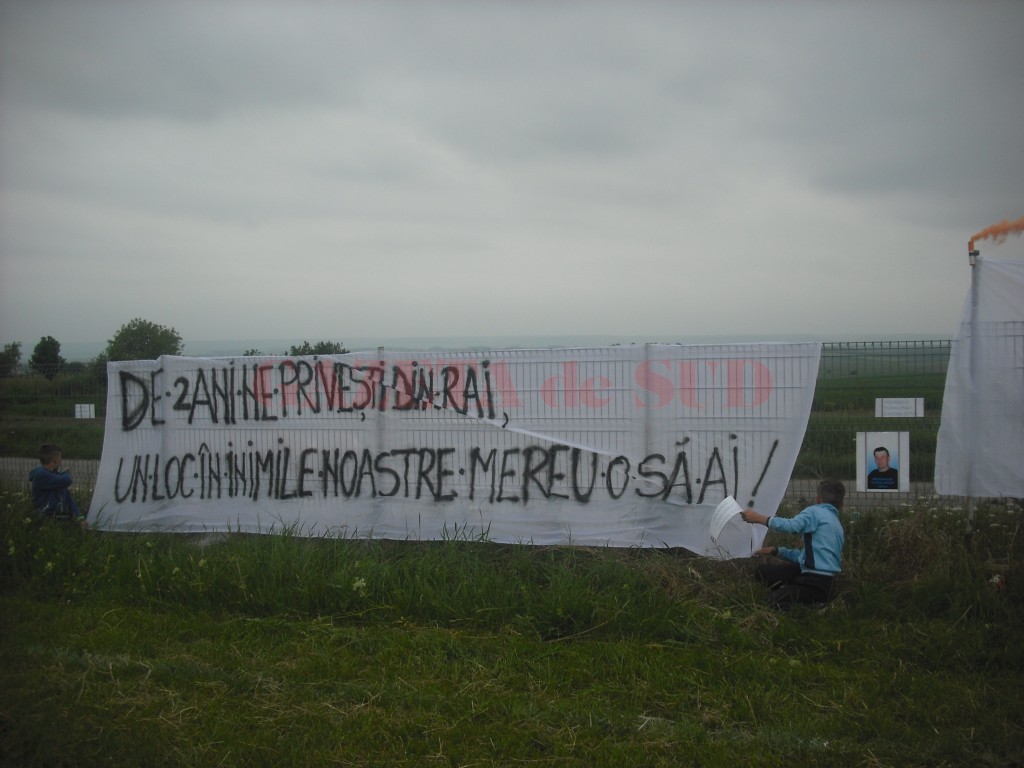 DE·2ANI·NE·PRIVEȘTI·DIN·RAI,
UN·LOC·ÎN·INIMILE·NOASTRE·MEREU·O·SĂ·AI!
GAZETA de SUD